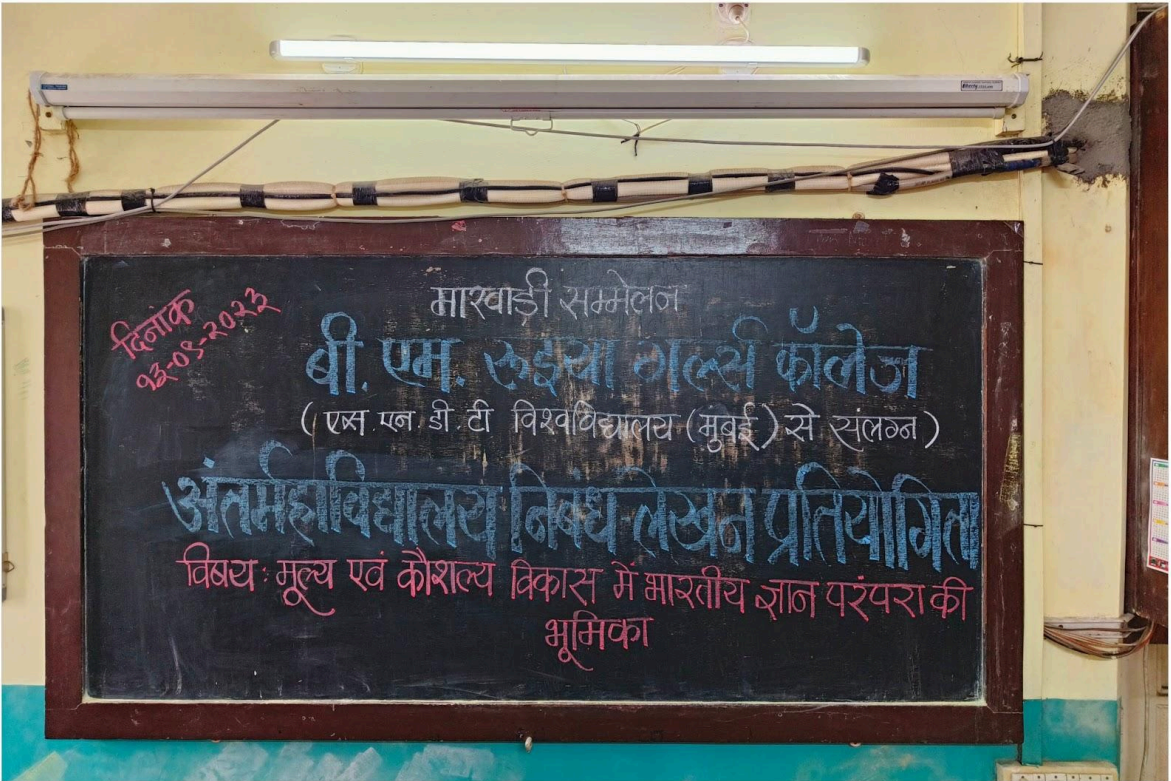 दिनांक
१३-०९-२०२३
मारवाडी सम्मेलन
बी. एम. रुइया गर्ल्स कॉलेज
(एस. एन. डी. टी विश्वविद्यालय (मुंबई) से संलग्न)
अंतर्महाविद्यालय निबंध लेखन प्रतियोगिता
विषय : मूल्य एवं कौशल्य विकास में भारतीय ज्ञान परंपरा की
भूमिका